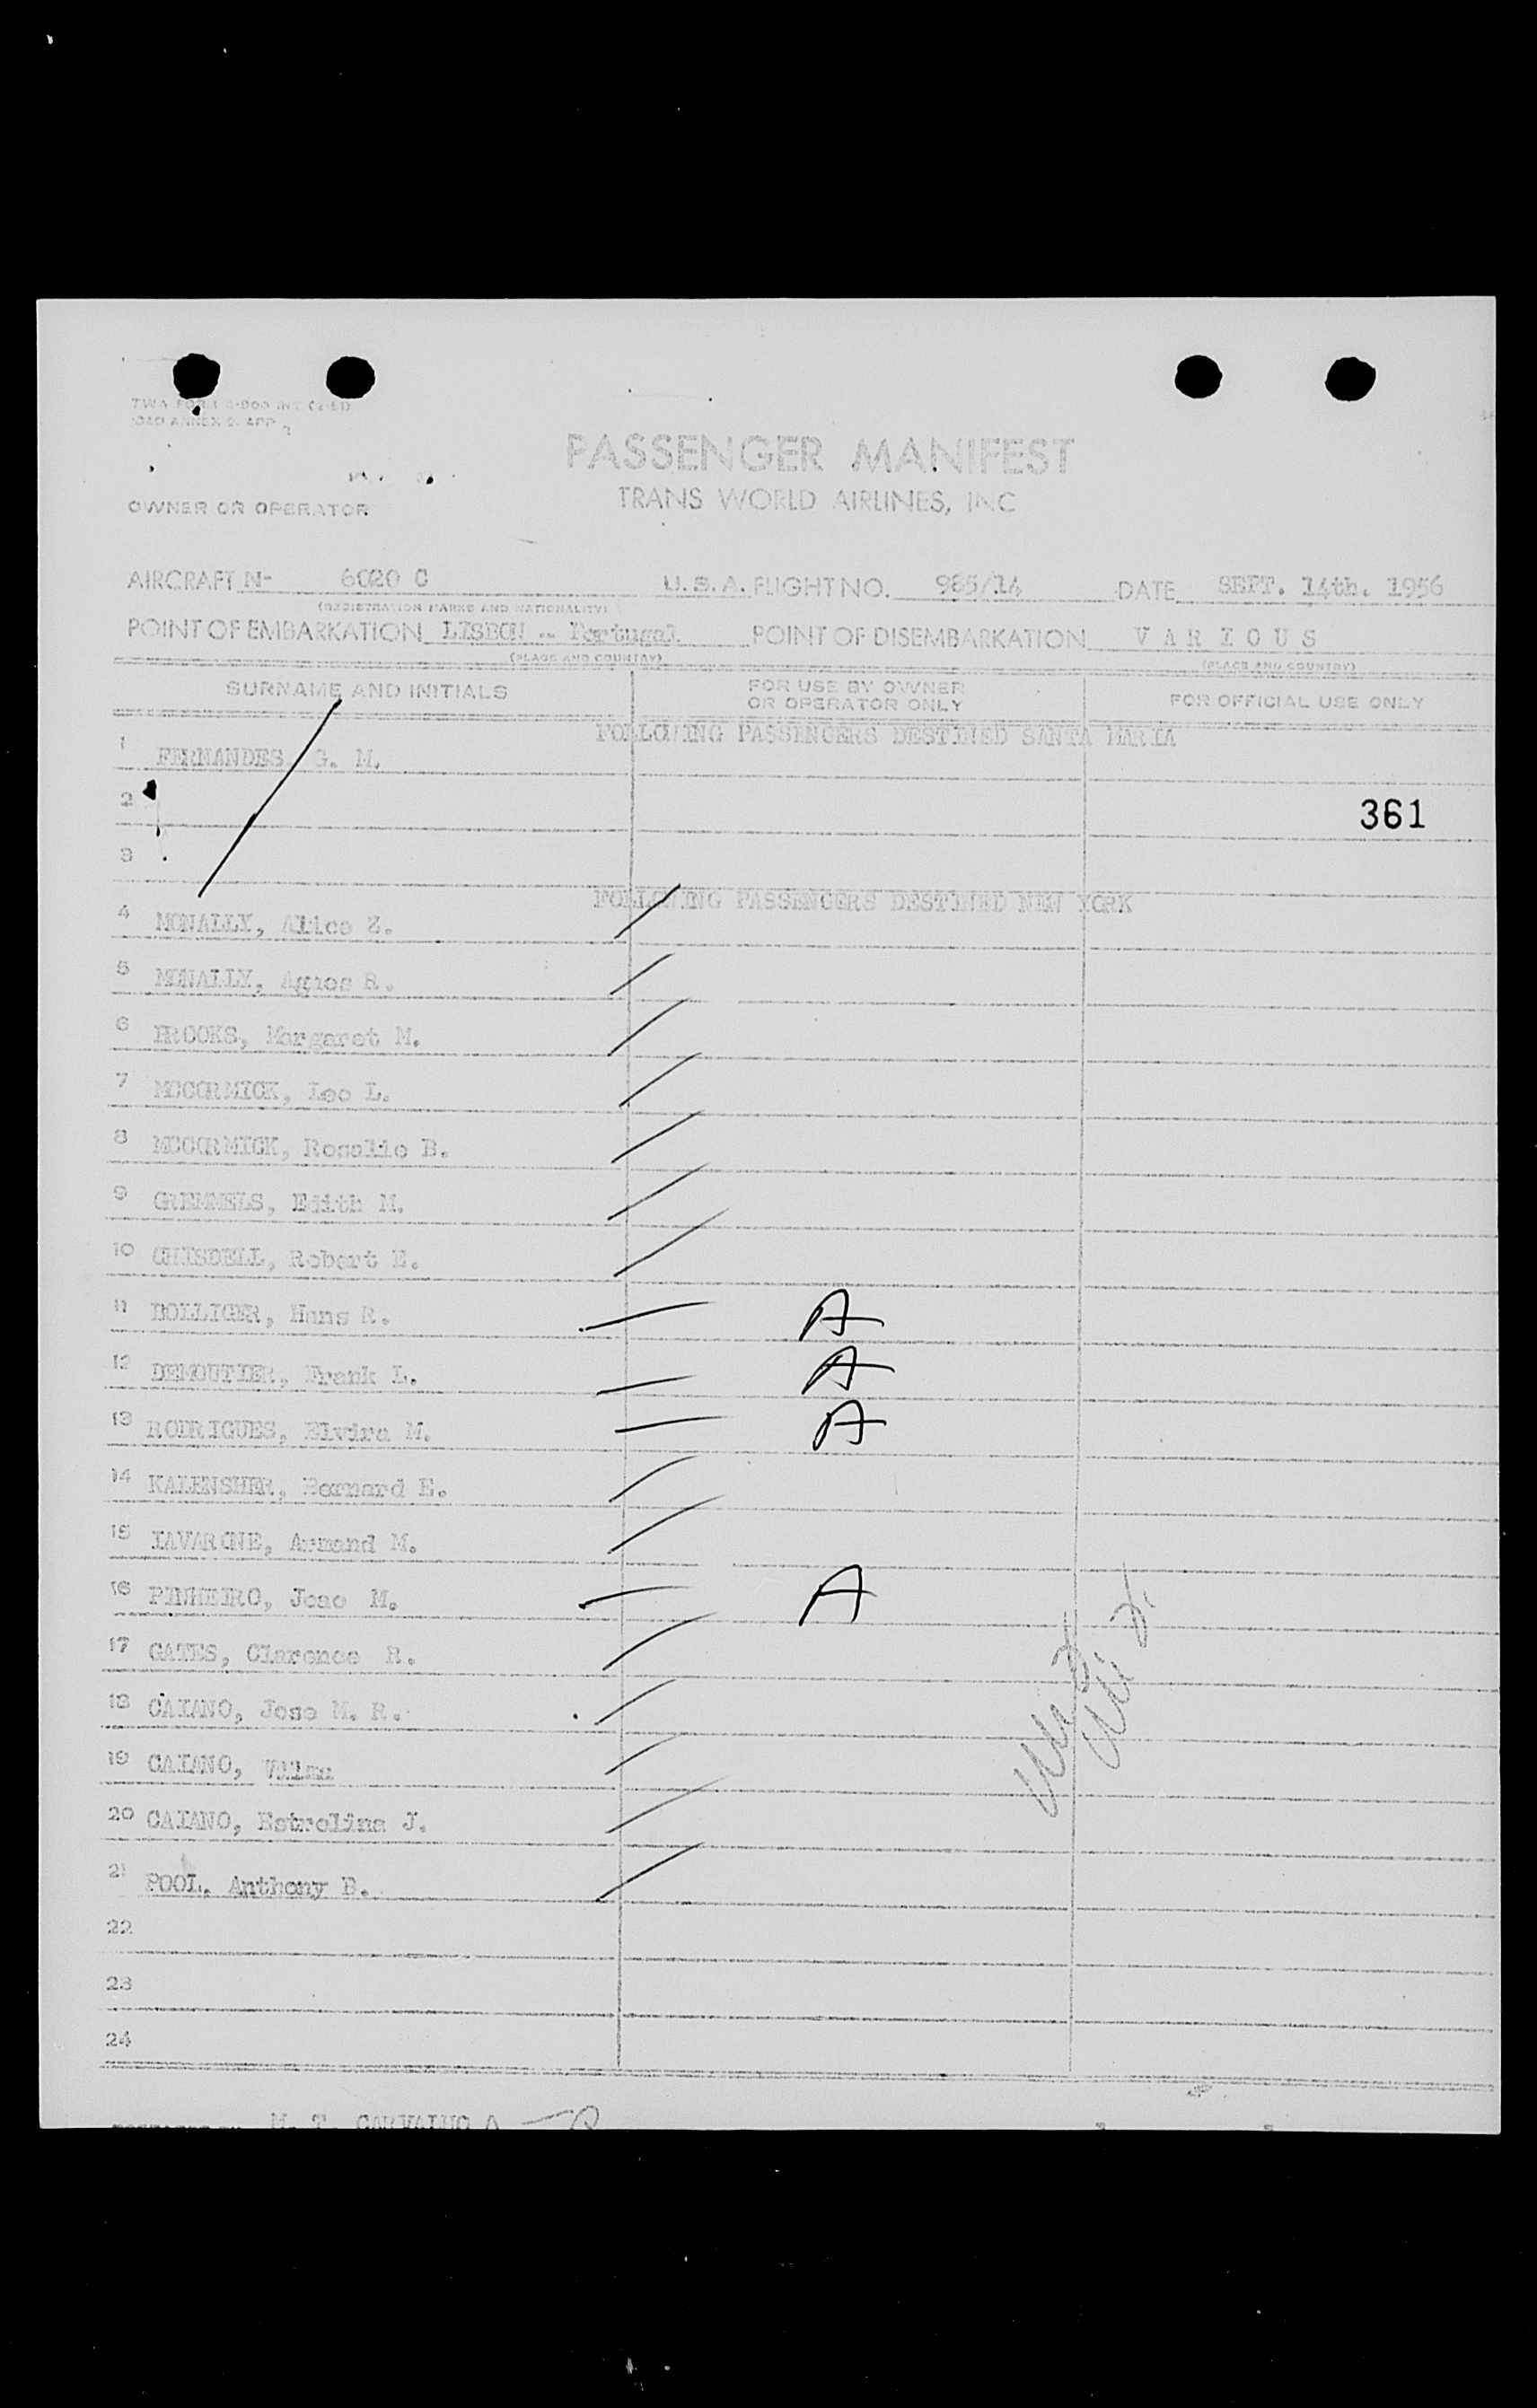 PASSENGER MANIFEST
TRANS WORLD AIRLINES, INC
OWNER OR OPERATOR
AIRCRAFT N- 6020 C U.S.A. FLIGHT NO. 985/14 DATE SEPT. 14th. 1956
(REGISTRATION MARKS AND NATIONALITY)
POINT OF EMBARKATION LISBON -- Portugal POINT OF DISEMBARKATION V A R I O U S
(PLACE AND COUNTRY) (PLACE AND COUNTRY)
SURNAME AND INITIALS FOR USE BY OWNER OR OPERATOR ONLY FOR OFFICIAL USE ONLY
FOLLOWING PASSENGERS DESTINED SANTA MARIA
1 FERNANDES, G. M.
2 361
3
FOLLOWING PASSENGERS DESTINED NEW YORK
4 MCNALLY, Alice Z.
5 MCNALLY, Agnes R.
6 BROOKS, Margaret M.
7 MCCORMICK, Leo L.
8 MCCORMICK, Rosalie B.
9 GREMMELS, Edith M.
10 Robert E.
11 BOLLIGER, Hans R. A
12 DEMOUTIER, Frank L. A
13 RODRIGUES, Elvira M. A
14 KALENSHER, Bernard E.
15 TAVARONE, Armand M.
16 PINHEIRO, Joao M. A
17 GATES, Clarence R.
18 CAIANO, Jose M. R.
19 CAIANO,
20 CAIANO, Estrelina J.
21 POOL, Anthony B.
22
23
24
M. T. CARVALHO A